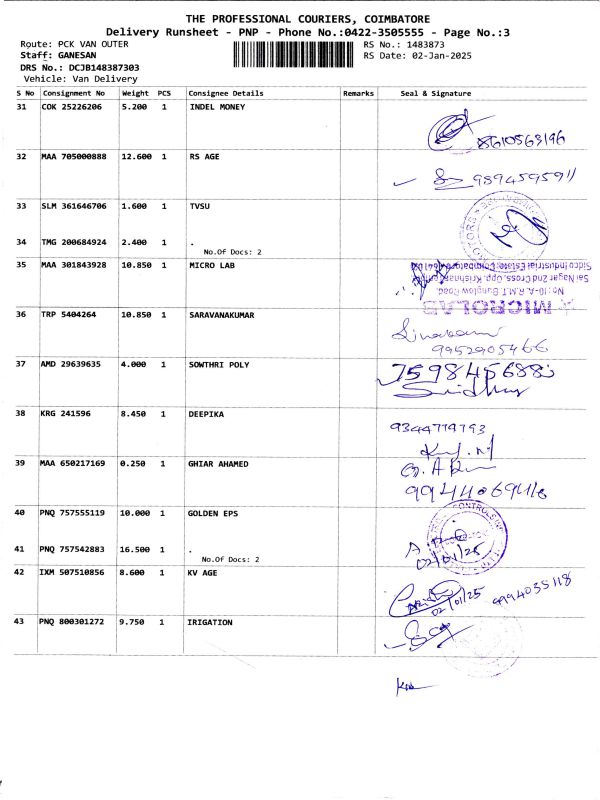 THE PROFESSIONAL COURIERS, COIMBATORE
Delivery Runsheet - PNP - Phone No.:0422-3505555 - Page No.:3
Route: PCK VAN OUTER RS No.: 1483873
Staff: GANESAN RS Date: 02-Jan-2025
DRS No.: DCJB148387303
Vehicle: Van Delivery
S No Consignment No Weight PCS Consignee Details Remarks Seal & Signature
31 COK 25226206 5.200 1 INDEL MONEY
8610563196
32 MAA 705000888 12.600 1 RS AGE
9894595911
33 SLM 361646706 1.600 1 TVSU
34 TMG 200684924 2.400 1 .
No.Of Docs: 2
35 MAA 301843928 10.850 1 MICRO LAB
Sidco Industrial Estate, Coimbatore
Sai Nagar 2nd Cross, Opp. Krishnan
No:10-A, R.M.T. Bunglow Road,
MICROLAB
36 TRP 5404264 10.850 1 SARAVANAKUMAR
9952905466
37 AMD 29639635 4.000 1 SOWTHRI POLY
7598456883
Sridhar
38 KRG 241596 8.450 1 DEEPIKA
9344779793
39 MAA 650217169 0.250 1 GHIAR AHAMED
40 PNQ 757555119 10.000 1 GOLDEN EPS
41 PNQ 757542883 16.500 1 .
No.Of Docs: 2
02/01/25
42 IXM 507510856 8.600 1 KV AGE
9994035118
02/01/25
43 PNQ 800301272 9.750 1 IRIGATION